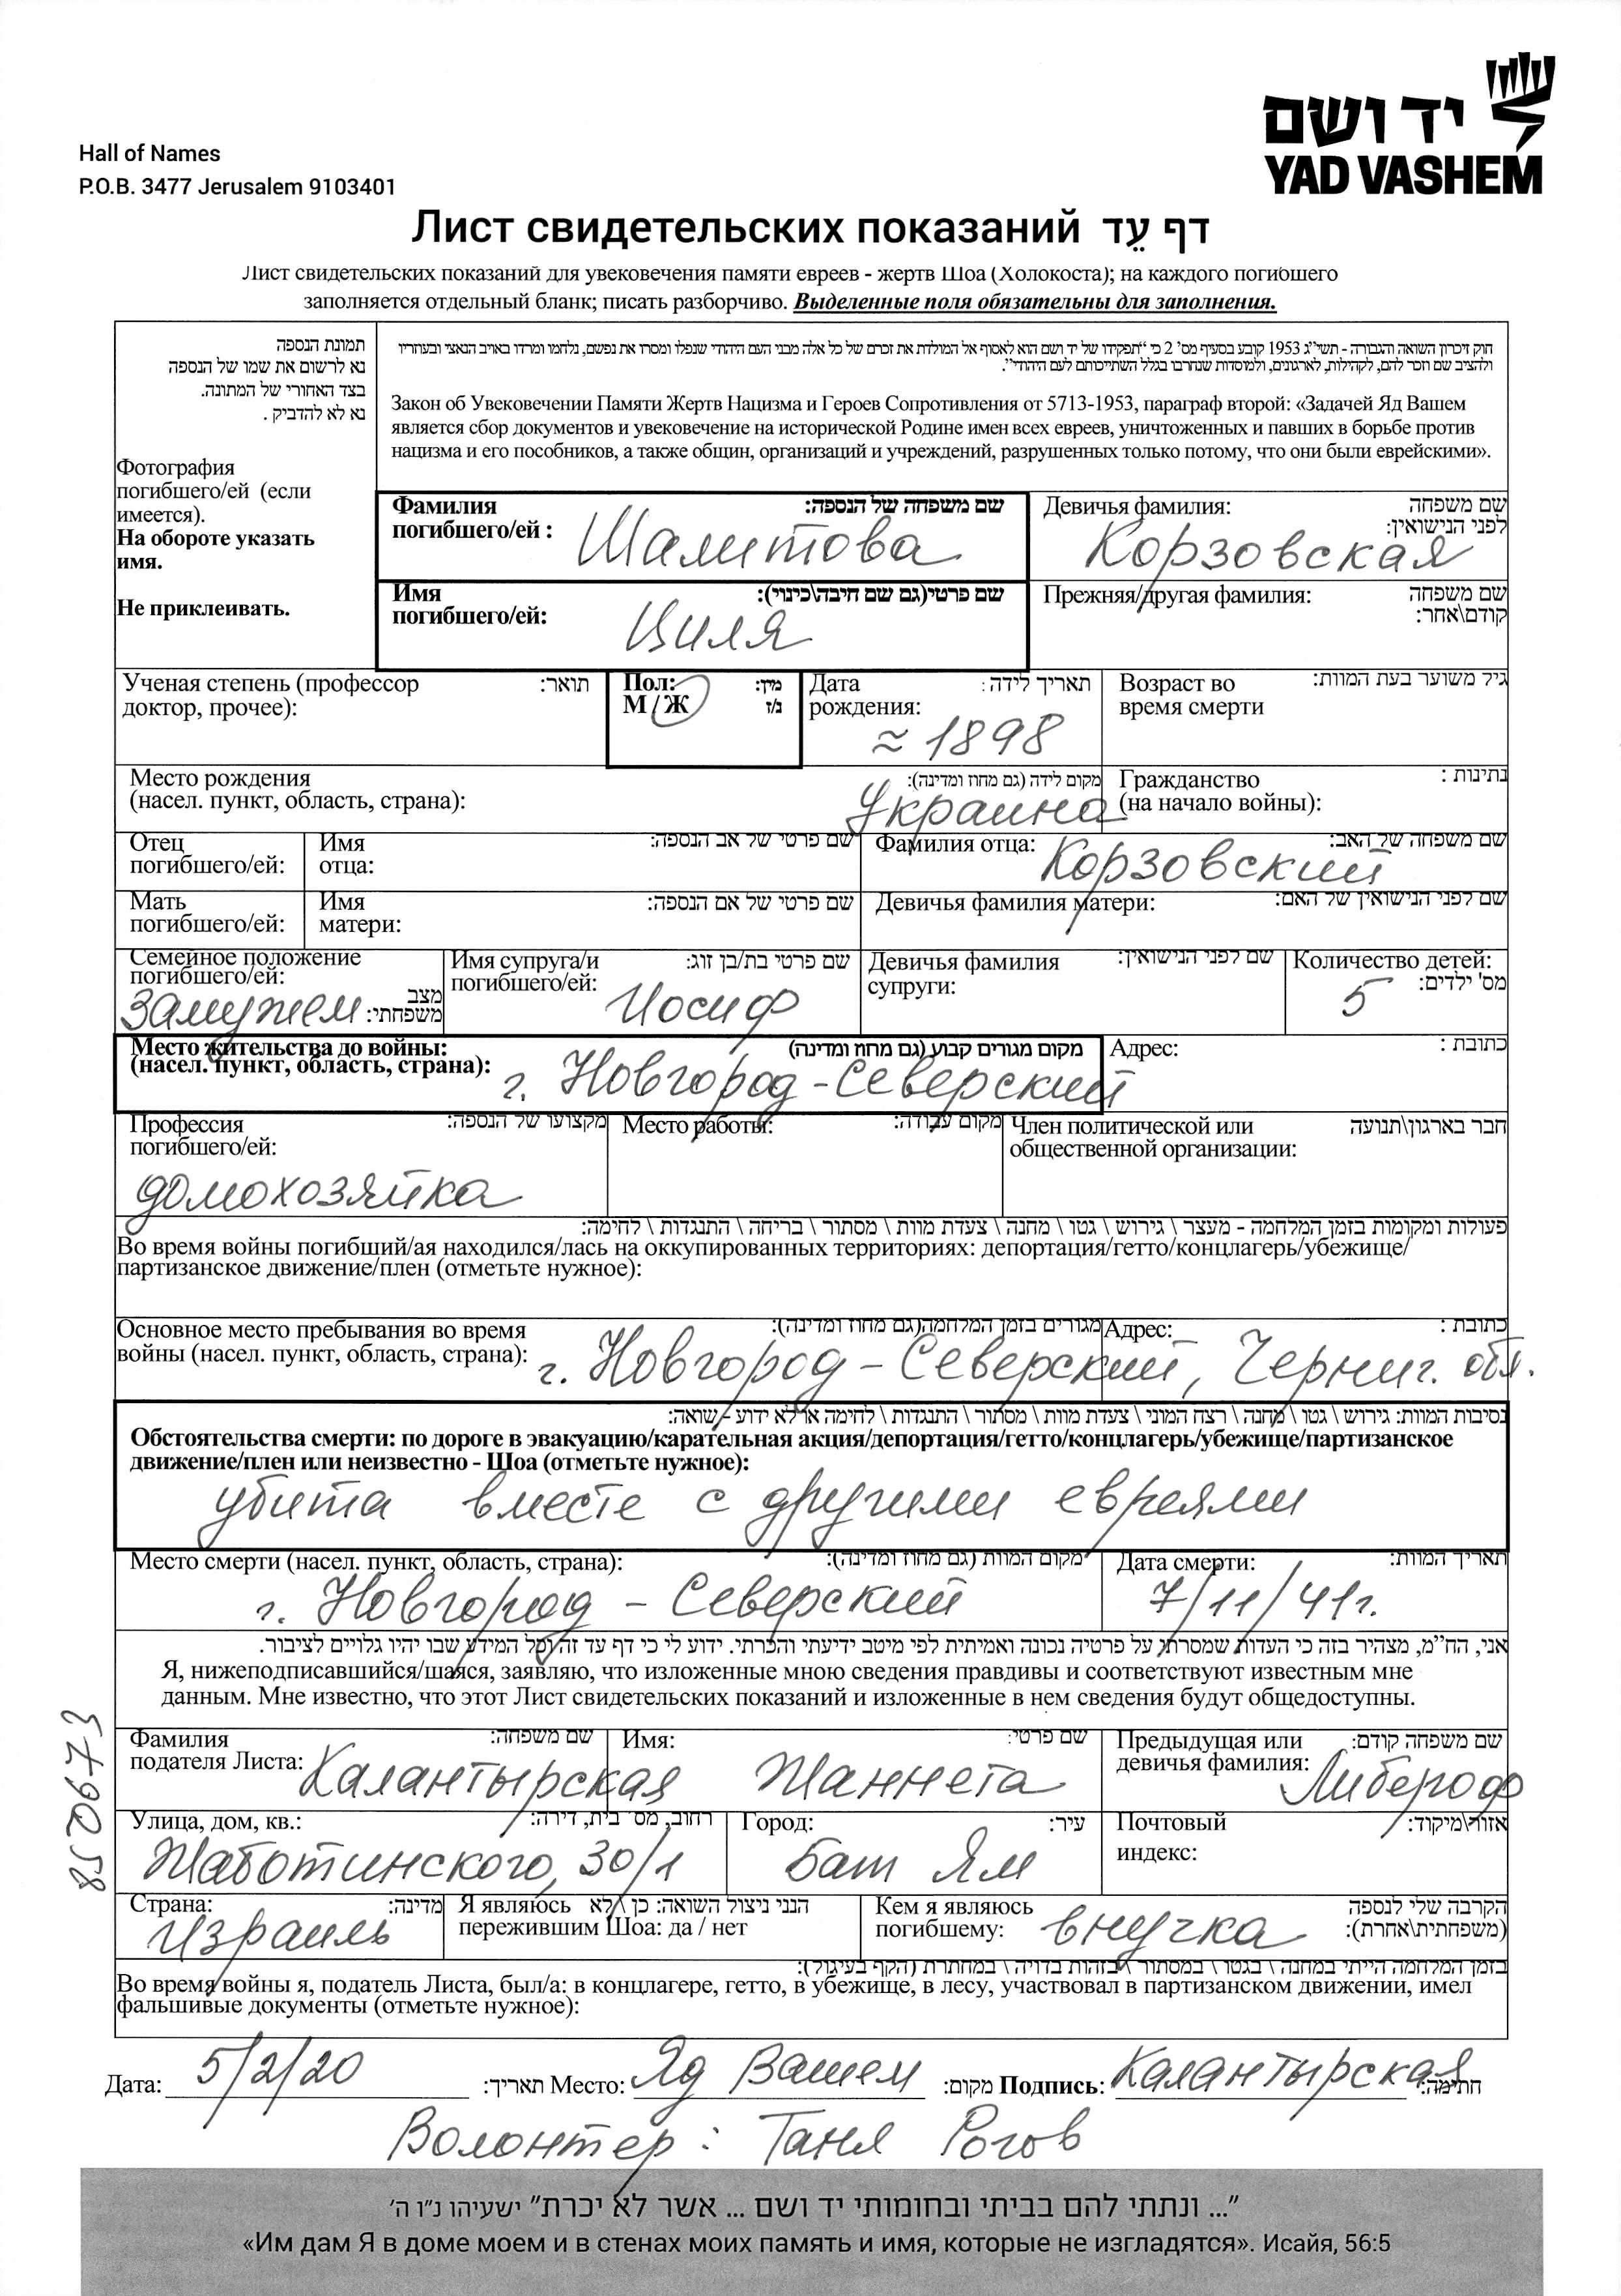 יד ושם
YAD VASHEM
Hall of Names
P.O.B. 3477 Jerusalem 9103401
Лист свидетельских показаний דף עֵד
Лист свидетельских показаний для увековечения памяти евреев - жертв Шоа (Холокоста); на каждого погибшего
заполняется отдельный бланк; писать разборчиво. Выделенные поля обязательны для заполнения.
תמונת הנספה
נא לרשום את שמו של הנספה
בצד האחורי של המתונה.
נא לא להדביק .
Фотография
погибшего/ей (если
имеется).
На обороте указать
имя.
Не приклеивать.
חוק זיכרון השואה והגבורה - תשי"ג 1953 קובע בסעיף מס' 2 כי "תפקידו של יד ושם הוא לאסוף אל המולדת את זכרם של כל אלה מבני העם היהודי שנפלו ומסרו את נפשם, נלחמו ומרדו באויב הנאצי ובעוזריו
ולהציב שם וזכר להם, לקהילות, לארגונים, ולמוסדות שנחרבו בגלל השתייכותם לעם היהודי".
Закон об Увековечении Памяти Жертв Нацизма и Героев Сопротивления от 5713-1953, параграф второй: «Задачей Яд Вашем
является сбор документов и увековечение на исторической Родине имен всех евреев, уничтоженных и павших в борьбе против
нацизма и его пособников, а также общин, организаций и учреждений, разрушенных только потому, что они были еврейскими».
Фамилия погибшего/ей : שם משפחה של הנספה:
Шалитова
Девичья фамилия: שם משפחה לפני הנישואין:
Корзовская
Имя погибшего/ей: שם פרטי(גם שם חיבה\כינוי):
Циля
Прежняя/другая фамилия: שם משפחה קודם\אחר:
Ученая степень (профессор доктор, прочее): תואר:
Пол: М / Ж מין: ז/נ
Дата рождения: תאריך לידה :
≈ 1898
Возраст во время смерти גיל משוער בעת המוות:
Место рождения (насел. пункт, область, страна): מקום לידה (גם מחוז ומדינה):
Украина
Гражданство (на начало войны): נתינות :
Отец погибшего/ей: Имя отца: שם פרטי של אב הנספה:
Фамилия отца: שם משפחה של האב:
Корзовский
Мать погибшего/ей: Имя матери: שם פרטי של אם הנספה:
Девичья фамилия матери: שם לפני הנישואין של האם:
Семейное положение погибшего/ей: מצב משפחתי:
Замужем
Имя супруга/и погибшего/ей: שם פרטי בת/בן זוג:
Иосиф
Девичья фамилия супруги: שם לפני הנישואין:
Количество детей: מס' ילדים:
5
Место жительства до войны: (насел. пункт, область, страна): מקום מגורים קבוע (גם מחוז ומדינה)
г. Новгород-Северский
Адрес: כתובת :
Профессия погибшего/ей: מקצועו של הנספה:
домохозяйка
Место работы: מקום עבודה:
Член политической или общественной организации: חבר בארגון\תנועה
פעולות ומקומות בזמן המלחמה - מעצר \ גירוש \ גטו \ מחנה \ צעדת מוות \ מסתור \ בריחה \ התנגדות \ לחימה:
Во время войны погибший/ая находился/лась на оккупированных территориях: депортация/гетто/концлагерь/убежище/
партизанское движение/плен (отметьте нужное):
Основное место пребывания во время войны (насел. пункт, область, страна): מגורים בזמן המלחמה(גם מחוז ומדינה):
Адрес: כתובת :
г. Новгород-Северский, Черниг. обл.
נסיבות המוות: גירוש \ גטו \ מחנה \ רצח המוני \ צעדת מוות \ מסתור \ התנגדות \ לחימה או לא ידוע - שואה:
Обстоятельства смерти: по дороге в эвакуацию/карательная акция/депортация/гетто/концлагерь/убежище/партизанское
движение/плен или неизвестно - Шоа (отметьте нужное):
убита вместе с другими евреями
Место смерти (насел. пункт, область, страна): מקום המוות (גם מחוז ומדינה):
г. Новгород - Северский
Дата смерти: תאריך המוות:
7/11/41г.
אני, הח"מ, מצהיר בזה כי העדות שמסרתי על פרטיה נכונה ואמיתית לפי מיטב ידיעתי והכרתי. ידוע לי כי דף עד זה וכל המידע שבו יהיו גלויים לציבור.
Я, нижеподписавшийся/шаяся, заявляю, что изложенные мною сведения правдивы и соответствуют известным мне
данным. Мне известно, что этот Лист свидетельских показаний и изложенные в нем сведения будут общедоступны.
Фамилия подателя Листа: שם משפחה:
Калантырская
Имя: שם פרטי:
Жаннета
Предыдущая или девичья фамилия: שם משפחה קודם:
Либероф
Улица, дом, кв.: רחוב, מס' בית, דירה:
Жаботинского, 30/1
Город: עיר:
Бат Ям
Почтовый индекс: אזור\מיקוד:
Страна: מדינה:
Израиль
Я являюсь пережившим Шоа: да / нет הנני ניצול השואה: כן \ לא
Кем я являюсь погибшему: הקרבה שלי לנספה (משפחתית\אחרת):
внучка
בזמן המלחמה הייתי במחנה \ בגטו \ במסתור \ בזהות בדויה \ במחתרת (הקף בעיגול):
Во время войны я, податель Листа, был/а: в концлагере, гетто, в убежище, в лесу, участвовал в партизанском движении, имел
фальшивые документы (отметьте нужное):
Дата: 5/2/20 תאריך: Место: Яд Вашем מקום: Подпись: Калантырская חתימה:
Волонтер: Таня Рогов
850673
"... ונתתי להם בביתי ובחומותי יד ושם ... אשר לא יכרת" ישעיהו נ"ו ה'
«Им дам Я в доме моем и в стенах моих память и имя, которые не изгладятся». Исайя, 56:5